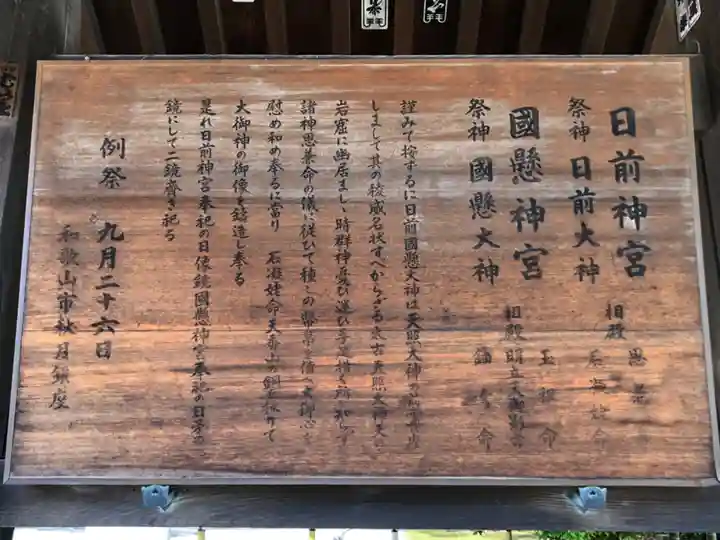 日前神宮
祭神 日前大神
相殿 思
石凝姥命
國懸神宮
祭神 國懸大神
相殿 玉祖命
明立天御影命
鈿女命
謹みて按するに日前國懸大神は天照大神の
しまして其の稜威名状すべからざる 太古天照大神天の
岩窟に幽居ましゝ時群神憂ひ迷ひ手足措き所知らず
諸神思兼命の議に従ひて種々の幣帛を備へ大御心を
慰め和め奉るに當り 石凝姥命天香山の銅を採りて
大御神の御像を鋳造し奉る
是れ日前神宮奉祀の日像鏡國懸神宮奉祀の日矛の
鏡にして二鏡齋き祀る
例祭 九月二十六日
和歌山市秋月鎮座